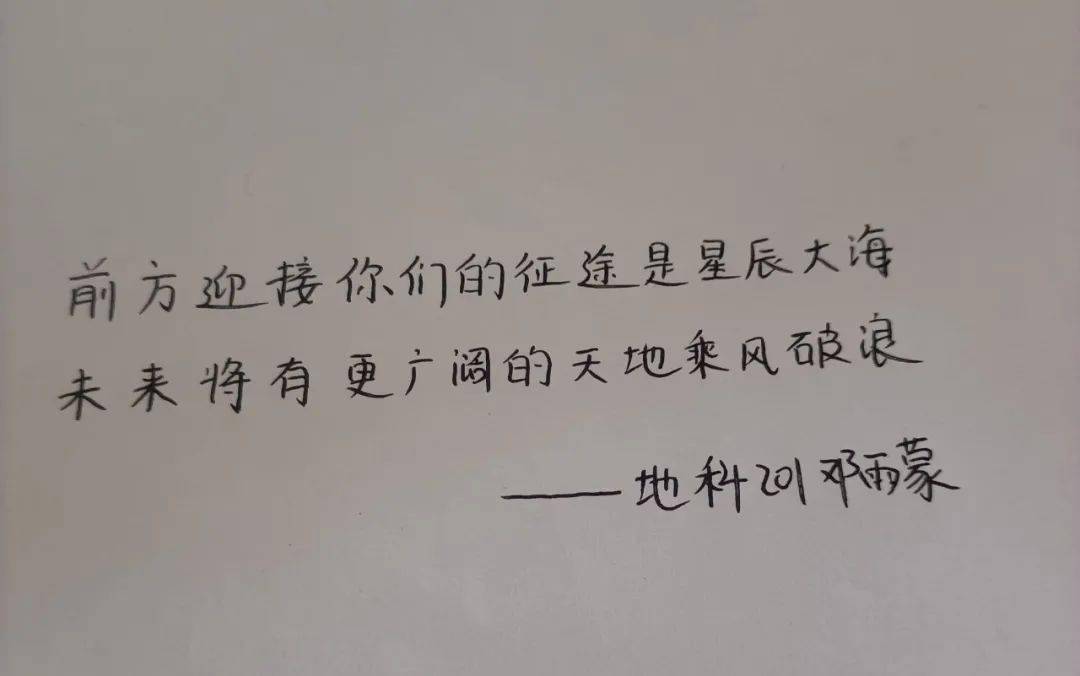 前方迎接你们的征途是星辰大海
未来将有更广阔的天地乘风破浪
——地科201邓雨蒙